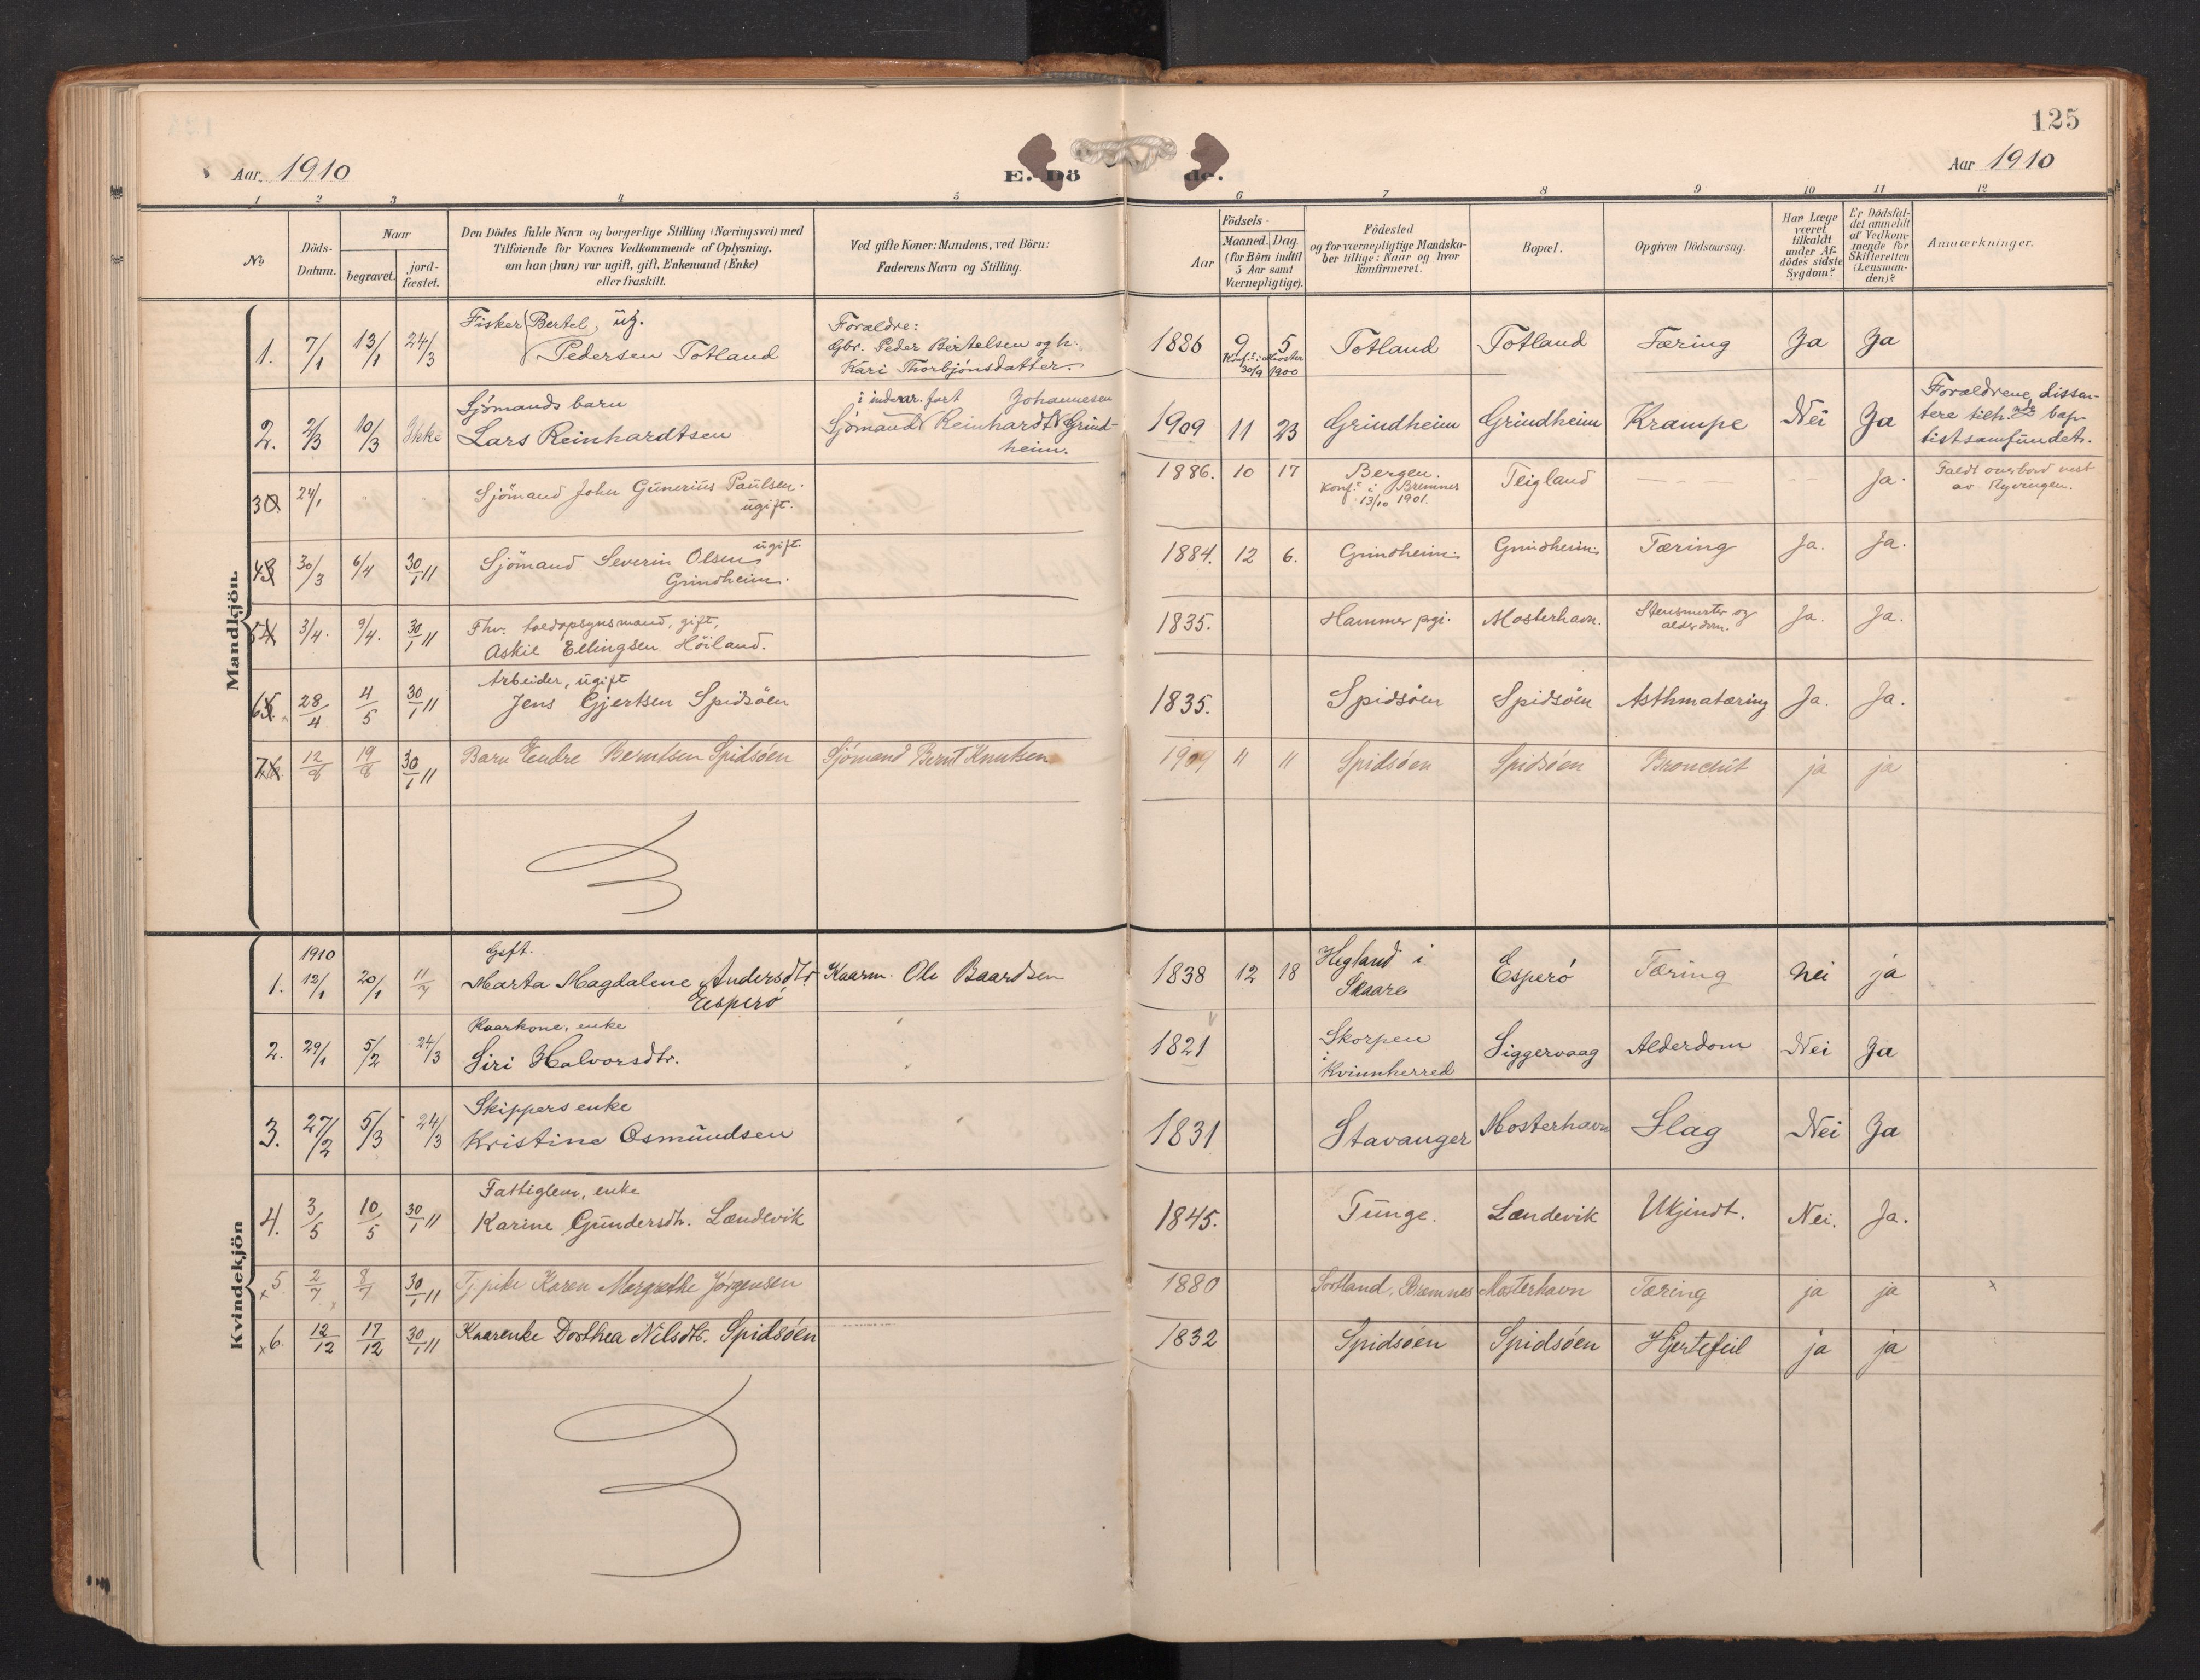 125
Aar. 1910
E. Dö de.
Aar 1910
1 2 3 4 5 6 7 8 9 10 11 12
No
Döds-Datum.
Naar
begravet. jord-fæstet.
Den Dödes fulde Navn og borgerlige Stilling (Næringsvei) med
Tilföiende for Voxnes Vedkommende af Oplysning,
om han (hun) var ugift, gift, Enkemand (Enke)
eller fraskilt.
Ved gifte Koner: Mandens, ved Börn:
Faderens Navn og Stilling.
Födsels-
Aar Maaned. Dag.
(for Börn indtil
5 Aar samt
Værnepligtige).
Födested
og for værnepligtige Mandska-
ber tillige: Naar og hvor
konfirmeret.
Bopæl.
Opgiven Dödsaarsag.
Har Læge
været
tilkaldt
under Af-
dödes sidste
Sygdom?
Er Dödsfal-
det anmeldt
af Vedkom-
mende for
Skifteretten
(Lensman-
den)?
Anmærkninger.
Mandkjön.
1. 7/1 13/1 24/3 Fisker Bertel, ug.
Pedersen Totland
Forældre:
Gbr. Peder Bertelsen og h.
Kari Thorbjönsdatter.
1886 9 5 Totland Totland Tæring Ja Ja
Konf. i Moster
30/9 1900
2. 2/3 10/3 Ikke Sjömands barn
Lars Reinhardtsen
i indenr. fart Johannesen
Sjömand Reinhardt Grind-
heim.
1909 11 23 Grindheim Grindheim Krampe Nei Ja
Forældrene dissen-
tere tilh. bap-
tistsamfundet.
3. 24/1 " Sjömand John Gunerius Paulsen.
ugift.
1886. 10 17 Bergen. Teigland Ja.
Konf. i Bremnes
13/10 1901.
Faldt overbord vest
av Ryvingen.
4 30/3 6/4 30/1 11 Sjömand Severin Olsen ugift.
Grindheim.
1884. 12 6. Grindheim. Grindheim. Tæring Ja. Ja.
5 3/4. 9/4. 30/1 11 Fhv. toldopsynsmand, gift,
Askil Ellingsen Höiland.
1835. Hammer pgj. Mosterhavn. Stensmerter og
alderdom. Ja. Ja.
6 28/4 4/5 30/1 11 Arbeider, ugift
Jens Gjertsen Spidsöen
1835. Spidsöen Spidsöen Asthmatæring Ja. Ja.
7 12/8 19/8 30/1 11 Barn Endre Berntsen Spidsöen Sjömand Bernt Knutsen
1909 11 11 Spidsöen Spidsöen Bronchit ja ja
Kvindekjön
1910
1. 12/1 20/1 11/7 Gift.
Marta Magdalene Andersdtr. Kaarm. Ole Baardsen
Esperö
1838 12 18 Hegland i
Skaare Esperö Tæring Nei ja
2. 29/1 5/2 24/3 Kaarkone, enke
Siri Halvorsdtr.
1821 Skorpen
i
Kvinnherred Siggervaag Alderdom Nei Ja
3. 27/2 5/3 24/3 Skippers enke
Kristine Osmundsen
1831 Stavanger Mosterhavn Slag Nei Ja
4. 3/5 10/5 30/1 11 Fattiglem, enke
Karine Gundersdtr. Landevik
1845. Tunge. Landevik Ukjendt. Nei. Ja.
x 5 2/7 8/7 30/1 11 Tj pike Karen Margrethe Jörgensen
1880 Sortland, Bremnes Mosterhavn Tæring ja ja x
x 6. 12/12 17/12 30/1 11 Kaarenke Dorthea Nilsdtr. Spidsöen
1832 Spidsöen Spidsöen Hjertefeil ja ja